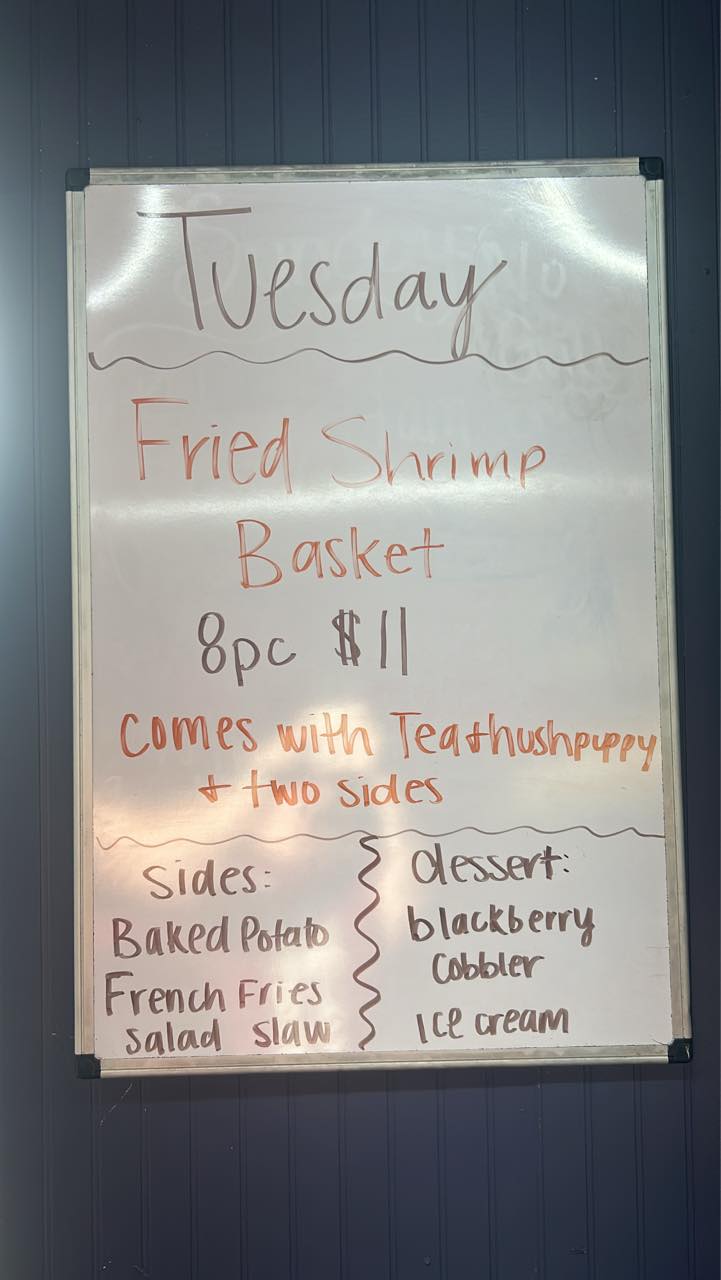 Tuesday
Fried Shrimp
Basket
8pc $11
Comes with Tea+hushpuppy
+ two sides
Sides:
Baked Potato
French Fries
salad slaw
dessert:
blackberry
Cobbler
Ice cream